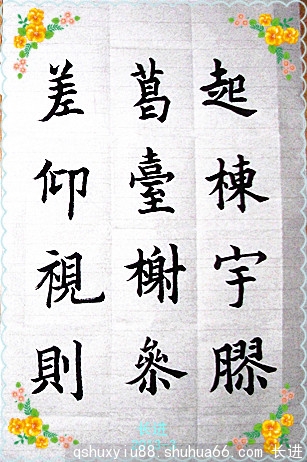 起棟宇膠
葛臺榭叅
差仰視則
长进
qshuxyiu88.shuhua66.com 长进